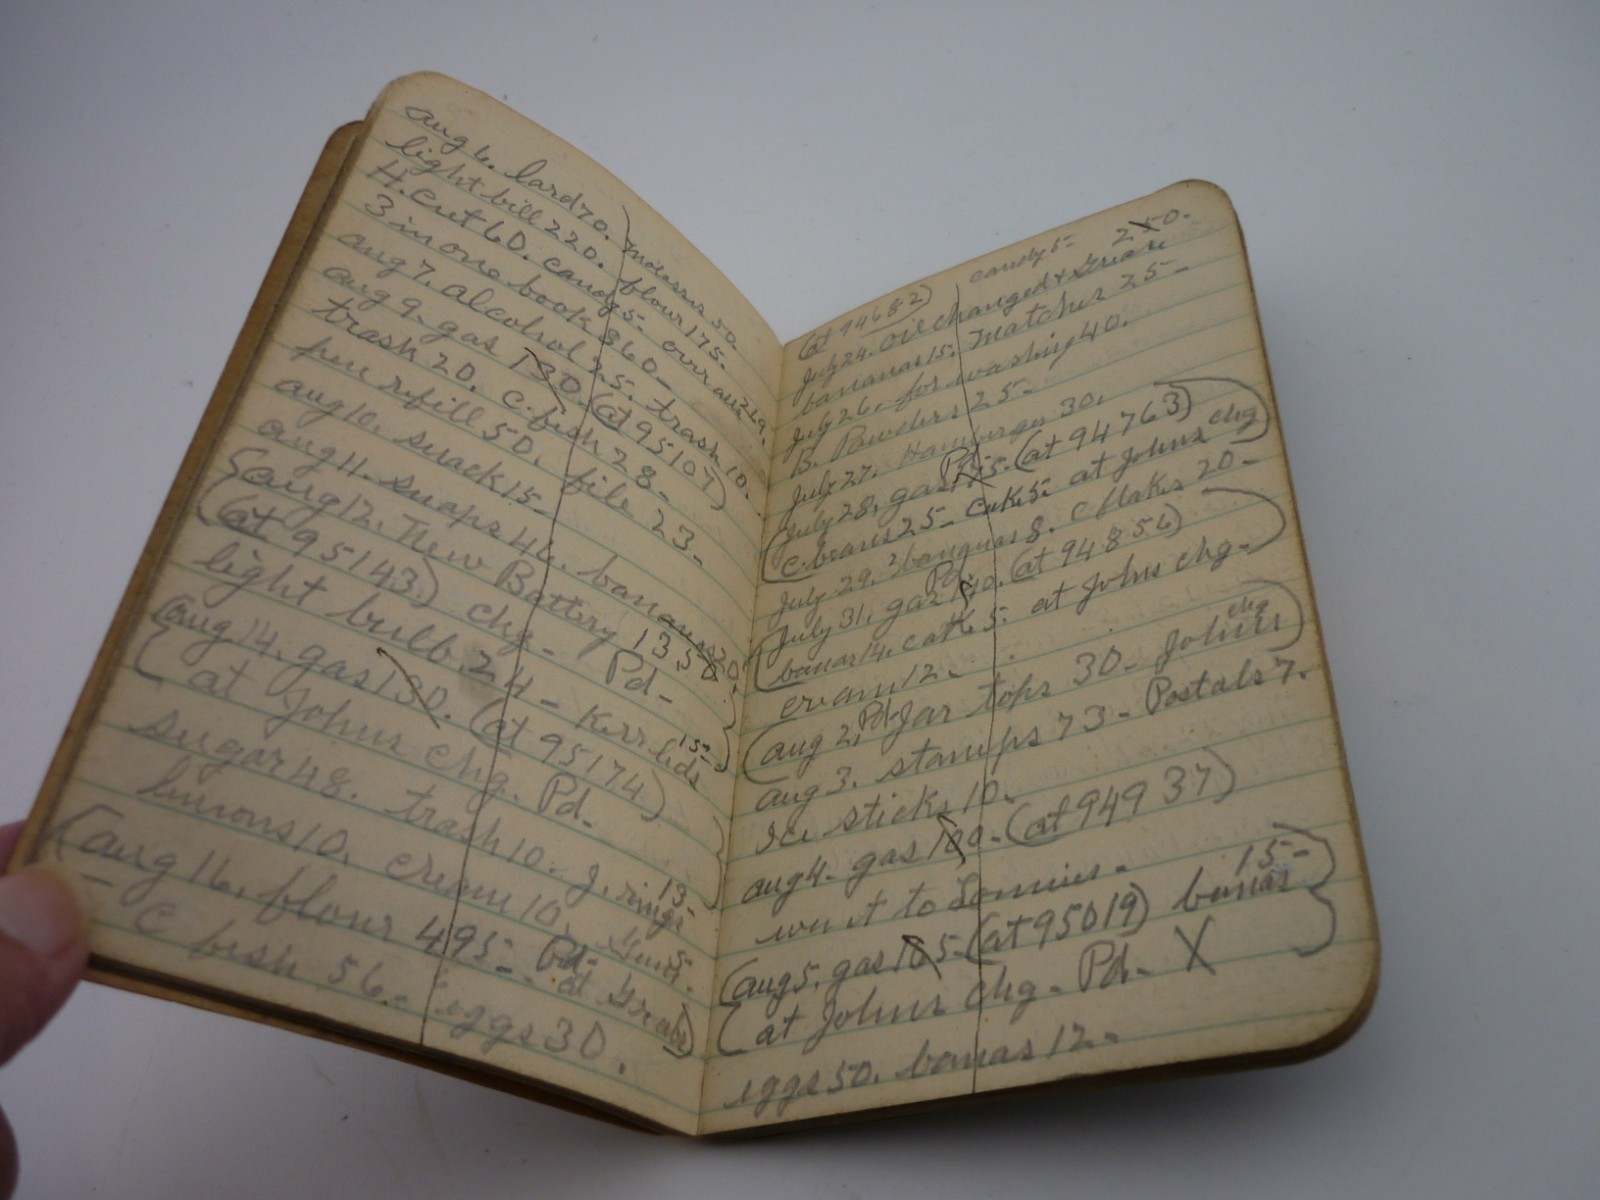 aug 6. lard 70. molasses 50.
light bill 220. flour 175.
H. cut 60. candy 5.
3 in one book 860-
aug 7. alcohol 25. trash 10.
aug 9. gas 130. (at 95107)
trash 20. c. fish 28-
pen refill 50. file 23-
aug 10. snack 15-
aug 11. snaps 46. bananas 20.
(aug 12. New Battery 13.50
(at 95143) chg- Pd-
light bulb. 24- Kerr lids 15-
(aug 14. gas 130. (at 95174)
at Johns chg. Pd-
sugar 48. trash 10. J. rings 13-
lemons 10. cream 10. 5-
(aug 16. flour 495- Pd- at
C fish 56. eggs 30.
candy 5- 250.
(at 94682)
July 24. oil changed &
bananas 15. matches 25-
July 26. for washing 40.
B. Powders 25-
July 27. Hamburger 30.
July 28. gas Pd- (at 94763)
(c. beans 25- cake 5. at Johns chg
July 29. 3 bananas 8. c flakes 20-
July 31. gas Pd- (at 94856)
(banas 14. cake 5. at Johns chg-
cream 12-
(aug 2. Pd- Jar tops 30- Johns chg
aug 3. stamps 73- Postals 7.
Ice sticks 10.
aug 4- gas 100- (at 94937)
went to
(aug 5. gas (at 95019) banas 15-
at Johns chg- Pd- X
eggs 50. banas 12-